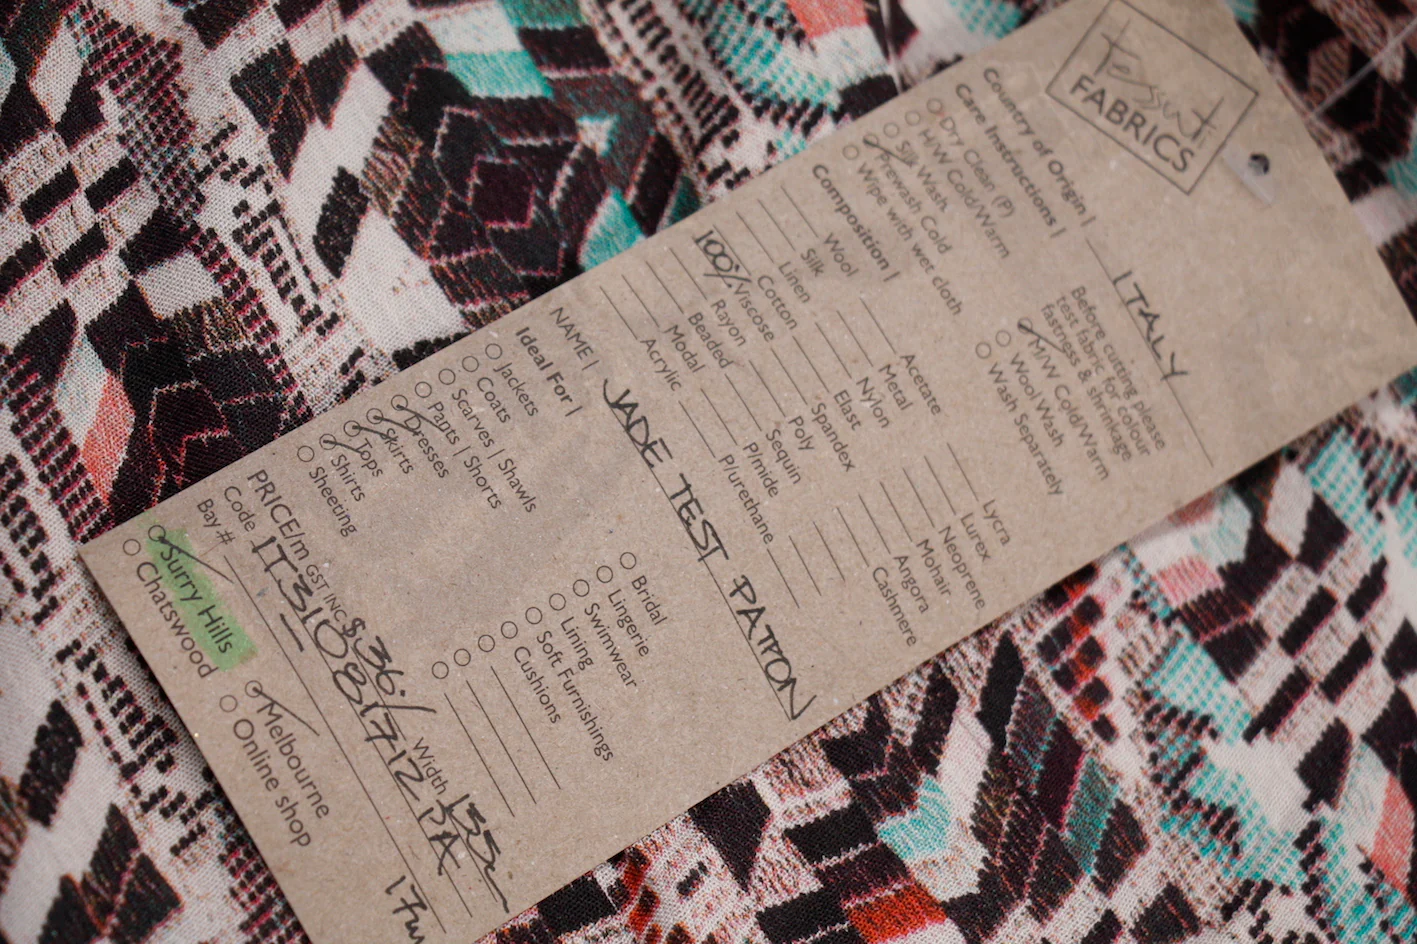 Tessuti
FABRICS
Country of Origin | ITALY
Care Instructions |
Before cutting please
test fabric for colour
fastness & shrinkage
Dry Clean (P)
H/W Cold/Warm
Silk Wash
Prewash Cold
Wipe with wet cloth
M/W Cold/Warm
Wool Wash
Wash Separately
Composition |
Wool
Silk
Linen
Cotton
100% Viscose
Rayon
Beaded
Modal
Acrylic
Acetate
Metal
Nylon
Elast
Spandex
Poly
Sequin
P/mide
P/urethane
Lycra
Lurex
Neoprene
Mohair
Angora
Cashmere
NAME | JADE TEST PATTON
Ideal For |
Jackets
Coats
Scarves | Shawls
Pants | Shorts
Dresses
Skirts
Tops
Shirts
Sheeting
Bridal
Lingerie
Swimwear
Lining
Soft Furnishings
Cushions
PRICE/m GST INC $36.
Width
Code
Bay #
Surry Hills
Chatswood
Melbourne
Online shop